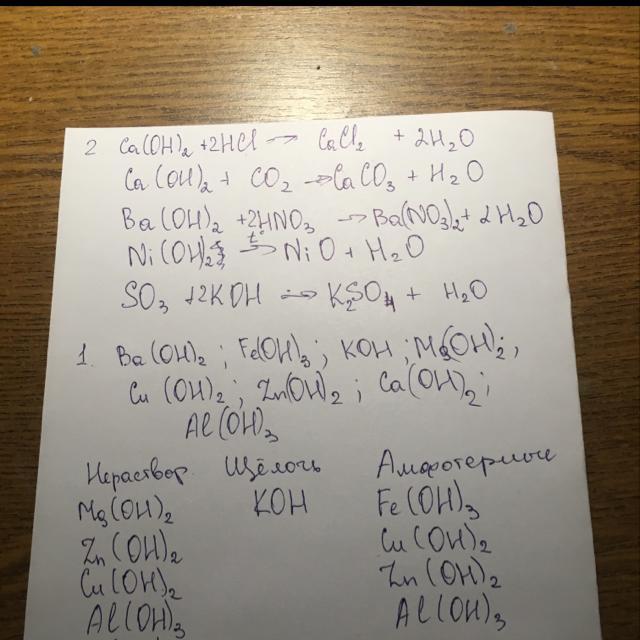 2 Ca(OH)₂ + 2HCl → CaCl₂ + 2H₂O
Ca(OH)₂ + CO₂ → CaCO₃ + H₂O
Ba(OH)₂ + 2HNO₃ → Ba(NO₃)₂ + 2H₂O
Ni(OH)₂ t→ NiO + H₂O
SO₃ + 2KOH → K₂SO₄ + H₂O
1. Ba(OH)₂; Fe(OH)₃; KOH; Mg(OH)₂;
Cu(OH)₂; Zn(OH)₂; Ca(OH)₂;
Al(OH)₃
Нераствор. Щёлочь Амфотерные
Mg(OH)₂ KOH Fe(OH)₃
Zn(OH)₂ Cu(OH)₂
Cu(OH)₂ Zn(OH)₂
Al(OH)₃ Al(OH)₃